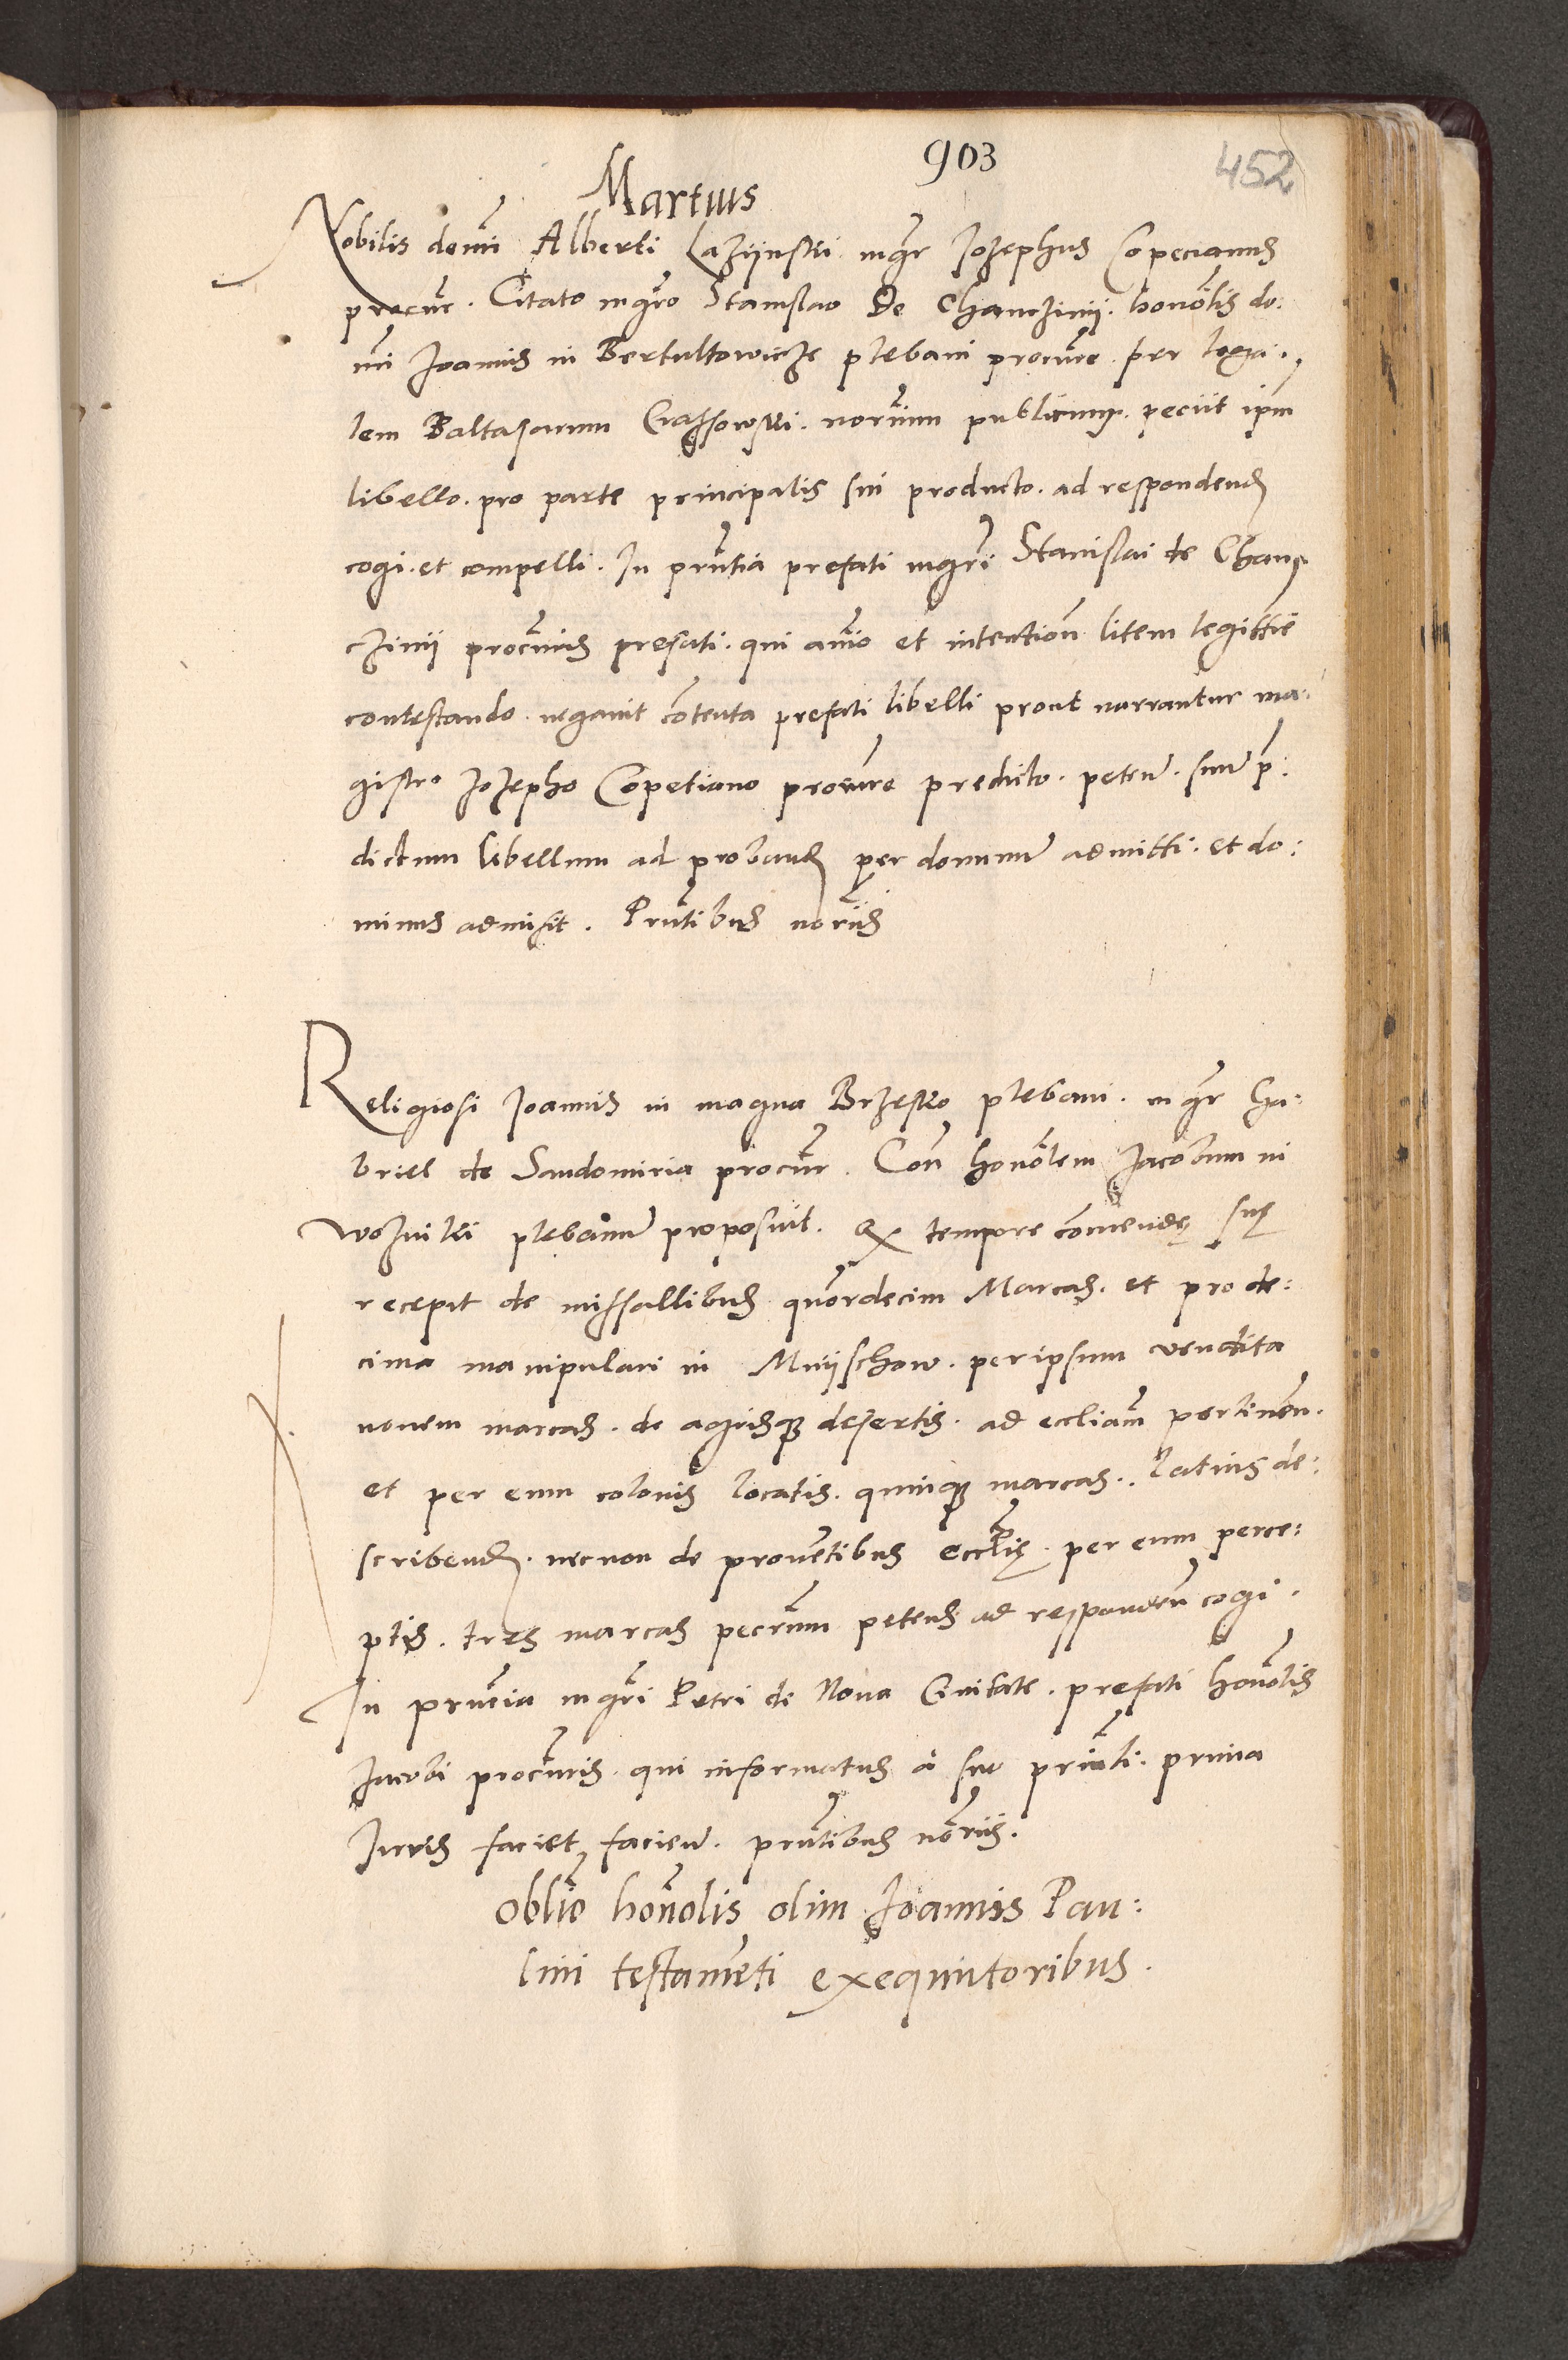 903
452
Martius
Nobilis domni Alberti Lazijnski mgr Jozephus Copecianus
procur. Citato mgro Stanislao De Chanczinij. honolis do:
mi Joannis in Bertultowicze plebani procure. per lega:
lem Baltasarum Crassowski. norium publicum. peciit ipm
libello. pro parte principalis sui producto. ad respondend
cogi. et compelli. In prntia prefati mgri Stanislai de Chan
czinij procuris prefati. qui animo et intention litem legittie
contestando. negavit contenta prefati libelli prout narrantur ma:
gistro Jozepho Copetiano procure predicto. peten. suum p:
dictum libellum ad proband per dominum admitti. et do:
minus admisit. Prntibus noriis
Religiosi Joannis in magna Brzesko plebani. mgr Ga:
briel de Sandomiria procur. Con honolem Jacobum in
Wozniki plebanum proposuit. Q tempore comendę suę
recepit de missallibus quordecim Marcas. et pro de:
cima manipulari in Mnijschow. per ipsum vendita
novem marcas. de agrisq desertis. ad eccliam pertinen.
et per eum colonis locatis. quinq marcas. latius de:
scribend. necnon de proventibus ecclię. per eum perce:
ptis. tres marcas pecrum petens ad responden cogi.
In prntia mgri Petri de Nova Civitate. prefati honolis
Jacobi procuris. qui informatus a suo prinli. prima
Juris faciet facien. prntibus noriis.
Oblio honolis olim Joannis Pau:
lini testamenti exequutoribus.